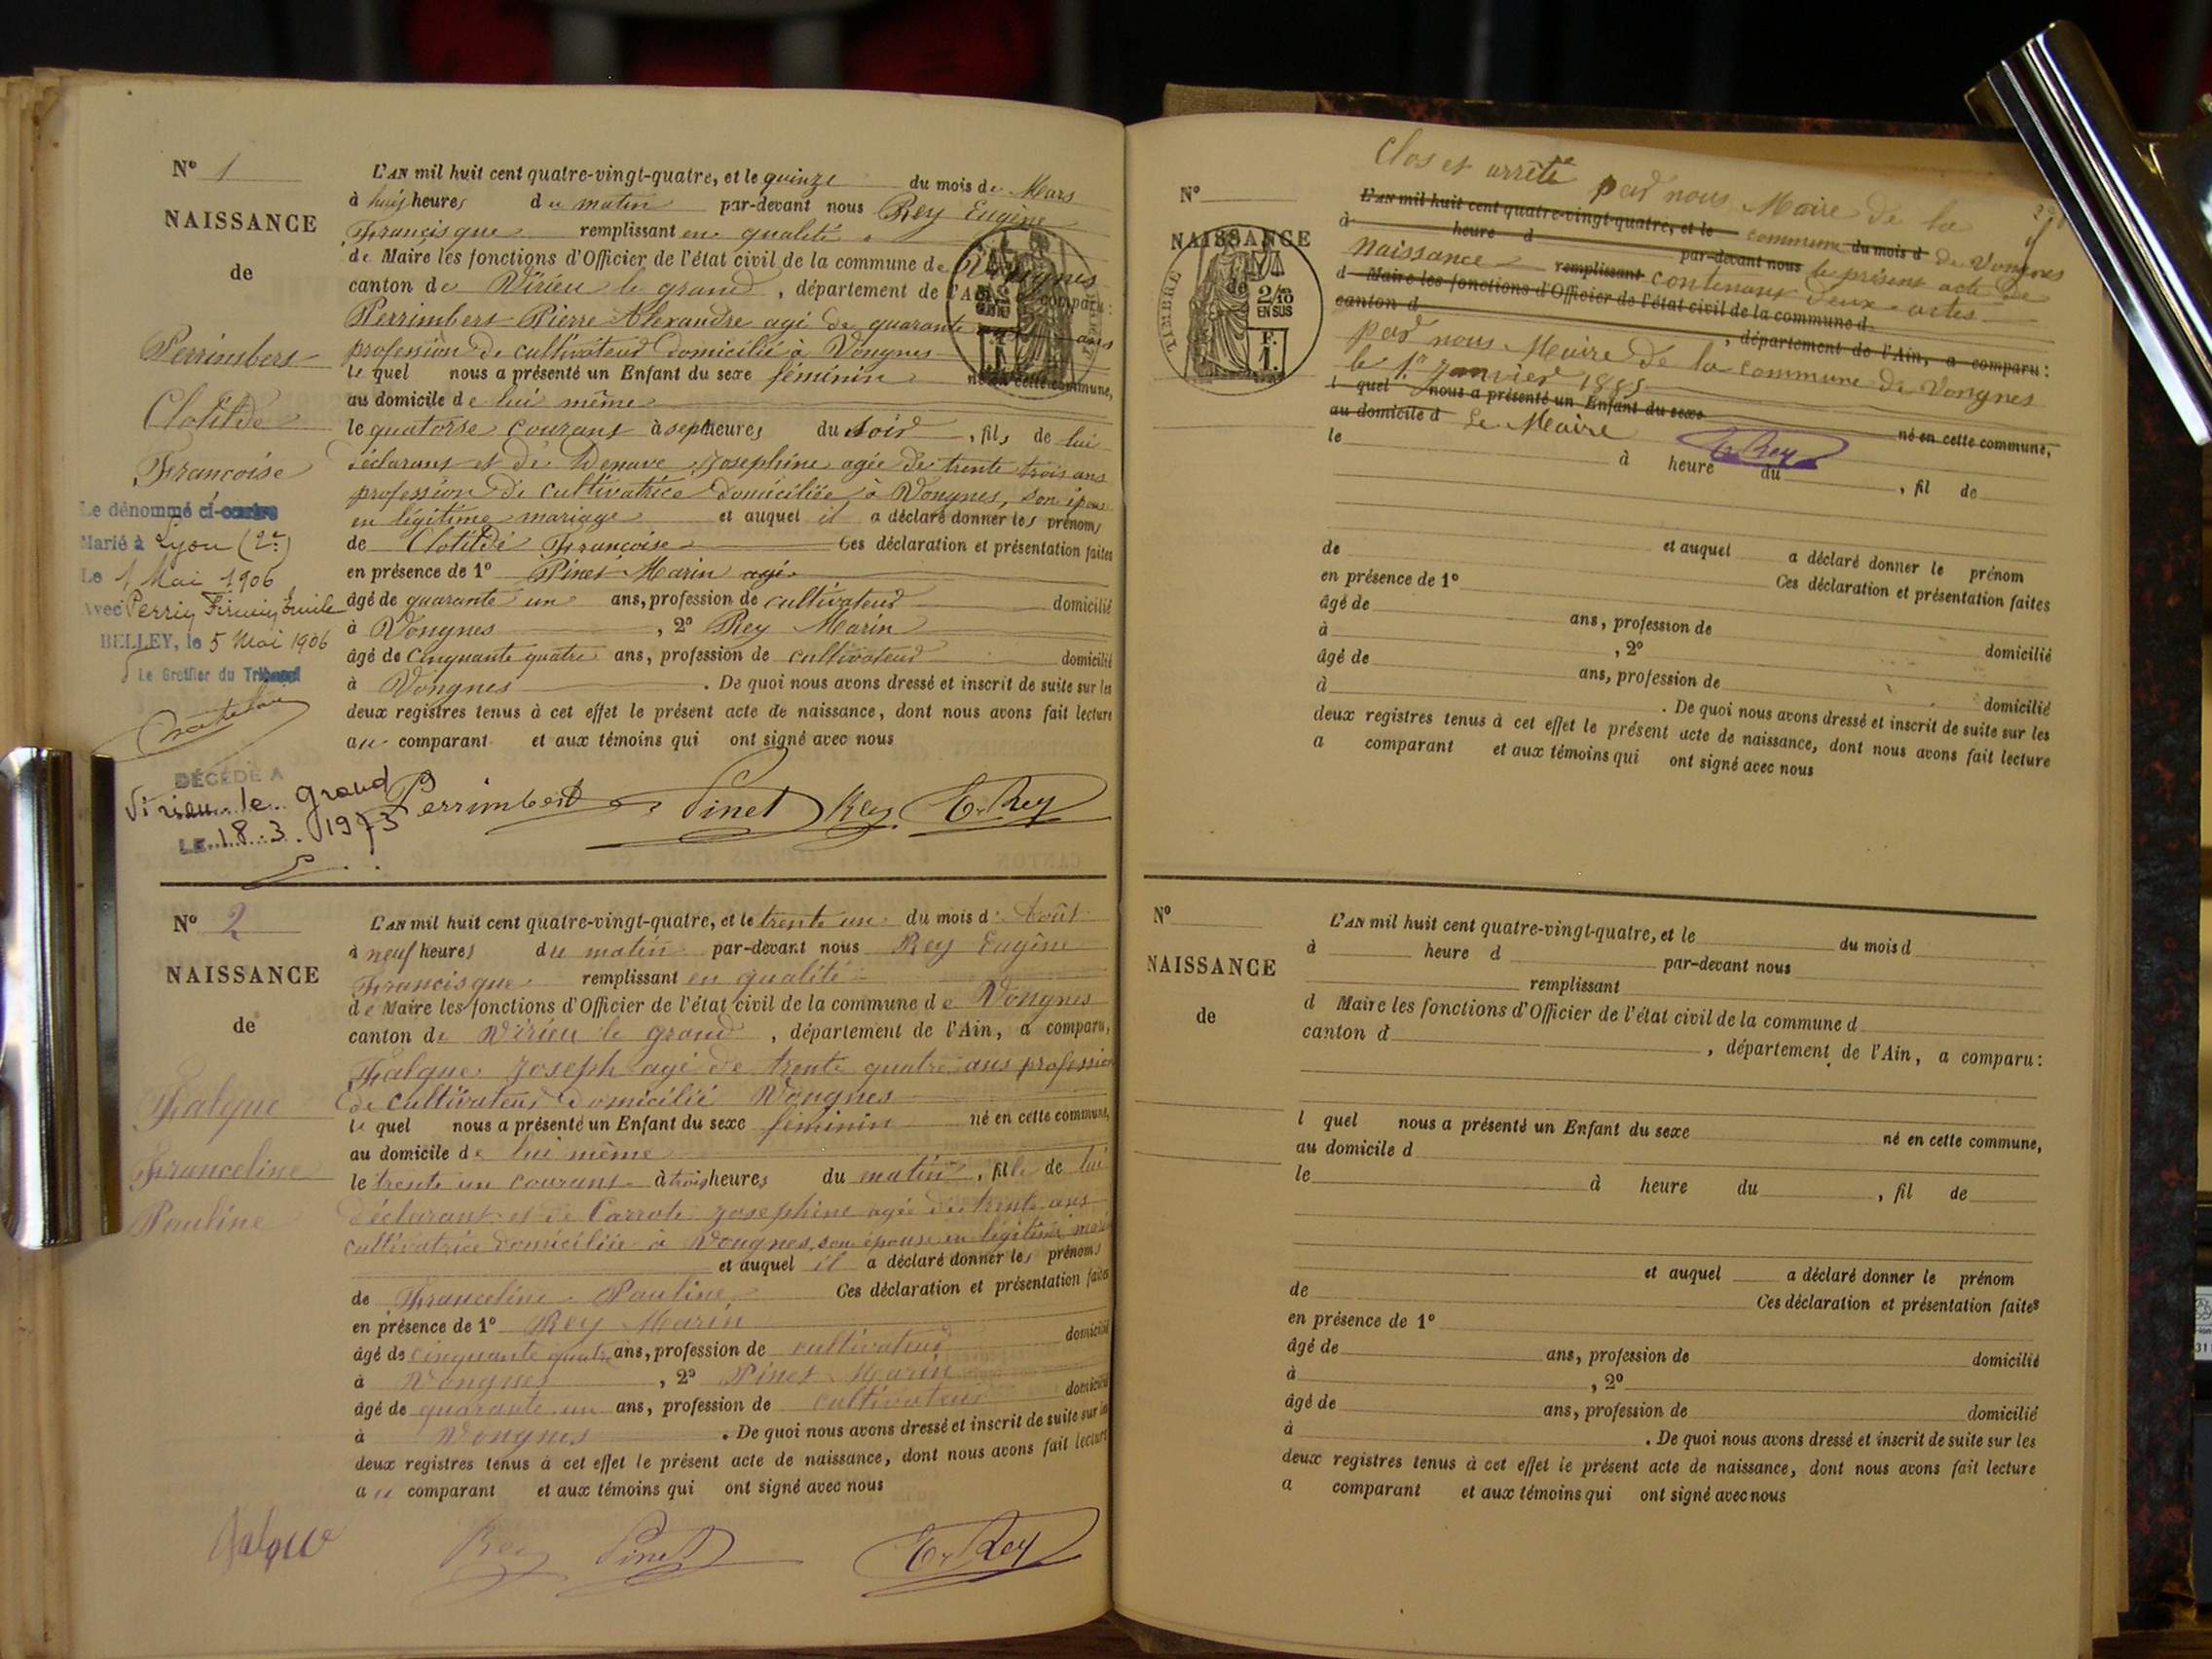 N° 1
NAISSANCE
de
Perrimbert
Clotilde
Françoise
Le dénommé ci-contre
Marié à Lyon (2e)
Le 1 Mai 1906
Avec Perrin Firmin Emile
BELLEY, le 5 Mai 1906
Le Greffier du Tribunal
DÉCÉDÉ A
Virieu-le-grand
LE 18.3.1973
L'AN mil huit cent quatre-vingt-quatre, et le quinze du mois de Mars
à huit heures du matin par-devant nous Rey Eugène
Francisque remplissant en qualité
de Maire les fonctions d'Officier de l'état civil de la commune de Vongnes
canton de Virieu le grand, département de l'Ain, a comparu:
Perrimbert Pierre Alexandre agé de quarante ans
profession de cultivateur domicilié à Vongnes
le quel nous a présenté un Enfant du sexe féminin né en cette commune,
au domicile de lui même
le quatorse courant à sept heures du soir, fils de lui
déclarant et de Josephine agée de trente trois ans
profession de cultivatrice domiciliée à Vongnes, son épouse
en légitime mariage et auquel il a déclaré donner les prénoms
de Clotilde Françoise Ces déclaration et présentation faites
en présence de 1° Pinet Marin agé
âgé de quarante un ans, profession de cultivateur domicilié
à Vongnes, 2° Rey Marin
âgé de cinquante quatre ans, profession de cultivateur domicilié
à Vongnes. De quoi nous avons dressé et inscrit de suite sur les
deux registres tenus à cet effet le présent acte de naissance, dont nous avons fait lecture
au comparant et aux témoins qui ont signé avec nous
Perrimbert Pinet Rey E. Rey
N° 2
NAISSANCE
de
Falque
Franceline
Pauline
L'AN mil huit cent quatre-vingt-quatre, et le trente un du mois d'Août
à neuf heures du matin par-devant nous Rey Eugène
Francisque remplissant en qualité
de Maire les fonctions d'Officier de l'état civil de la commune de Vongnes
canton de Virieu le grand, département de l'Ain, a comparu,
Falque Joseph agé de trente quatre ans profession
de cultivateur domicilié Vongnes
le quel nous a présenté un Enfant du sexe féminin né en cette commune,
au domicile de lui même
le trente un courant à trois heures du matin, fille de lui
déclarant et de Carrot Josephine agée de trente ans
cultivatrice domiciliée à Vongnes, son épouse en légitime
et auquel il a déclaré donner les prénoms
de Franceline Pauline Ces déclaration et présentation faites
en présence de 1° Rey Marin
âgé de cinquante quatre ans, profession de cultivateur domicilié
à Vongnes, 2° Pinet Marin
âgé de quarante un ans, profession de cultivateur domicilié
à Vongnes. De quoi nous avons dressé et inscrit de suite sur les
deux registres tenus à cet effet le présent acte de naissance, dont nous avons fait lecture
au comparant et aux témoins qui ont signé avec nous
Falque Rey Pinet E. Rey
Clos et arrêté par nous Maire de la
N°
NAISSANCE
de
TIMBRE
2/10
EN SUS
F.
1.
L'AN mil huit cent quatre-vingt-quatre, et le commune du mois d de Vongnes
à heure d par-devant nous le présent acte de
naissance remplissant contenant deux actes
d Maire les fonctions d'Officier de l'état civil de la commune d
canton d, département de l'Ain, a comparu:
par nous Maire de la commune de Vongnes
le 1er Janvier 1885
l quel nous a présenté un Enfant du sexe né en cette commune,
au domicile d Le Maire E. Rey
le à heure du, fil de
et auquel a déclaré donner le prénom
de Ces déclaration et présentation faites
en présence de 1°
âgé de ans, profession de domicilié
à, 2°
âgé de ans, profession de domicilié
à. De quoi nous avons dressé et inscrit de suite sur les
deux registres tenus à cet effet le présent acte de naissance, dont nous avons fait lecture
a comparant et aux témoins qui ont signé avec nous
N°
NAISSANCE
de
L'AN mil huit cent quatre-vingt-quatre, et le du mois d
à heure d par-devant nous
remplissant
d Maire les fonctions d'Officier de l'état civil de la commune d
canton d, département de l'Ain, a comparu:
l quel nous a présenté un Enfant du sexe né en cette commune,
au domicile d
le à heure du, fil de
et auquel a déclaré donner le prénom
de Ces déclaration et présentation faites
en présence de 1°
âgé de ans, profession de domicilié
à, 2°
âgé de ans, profession de domicilié
à. De quoi nous avons dressé et inscrit de suite sur les
deux registres tenus à cet effet le présent acte de naissance, dont nous avons fait lecture
a comparant et aux témoins qui ont signé avec nous